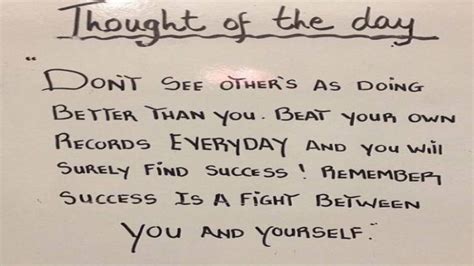 Thought of the day
"
DON'T SEE OTHER'S AS DOING
BETTER THAN YOU. BEAT YOUR OWN
RECORDS EVERYDAY AND YOU Will
SURELY FIND SUCCESS! REMEMBER,
SUCCESS IS A FIGHT BETWEEN
YOU AND YOURSELF."